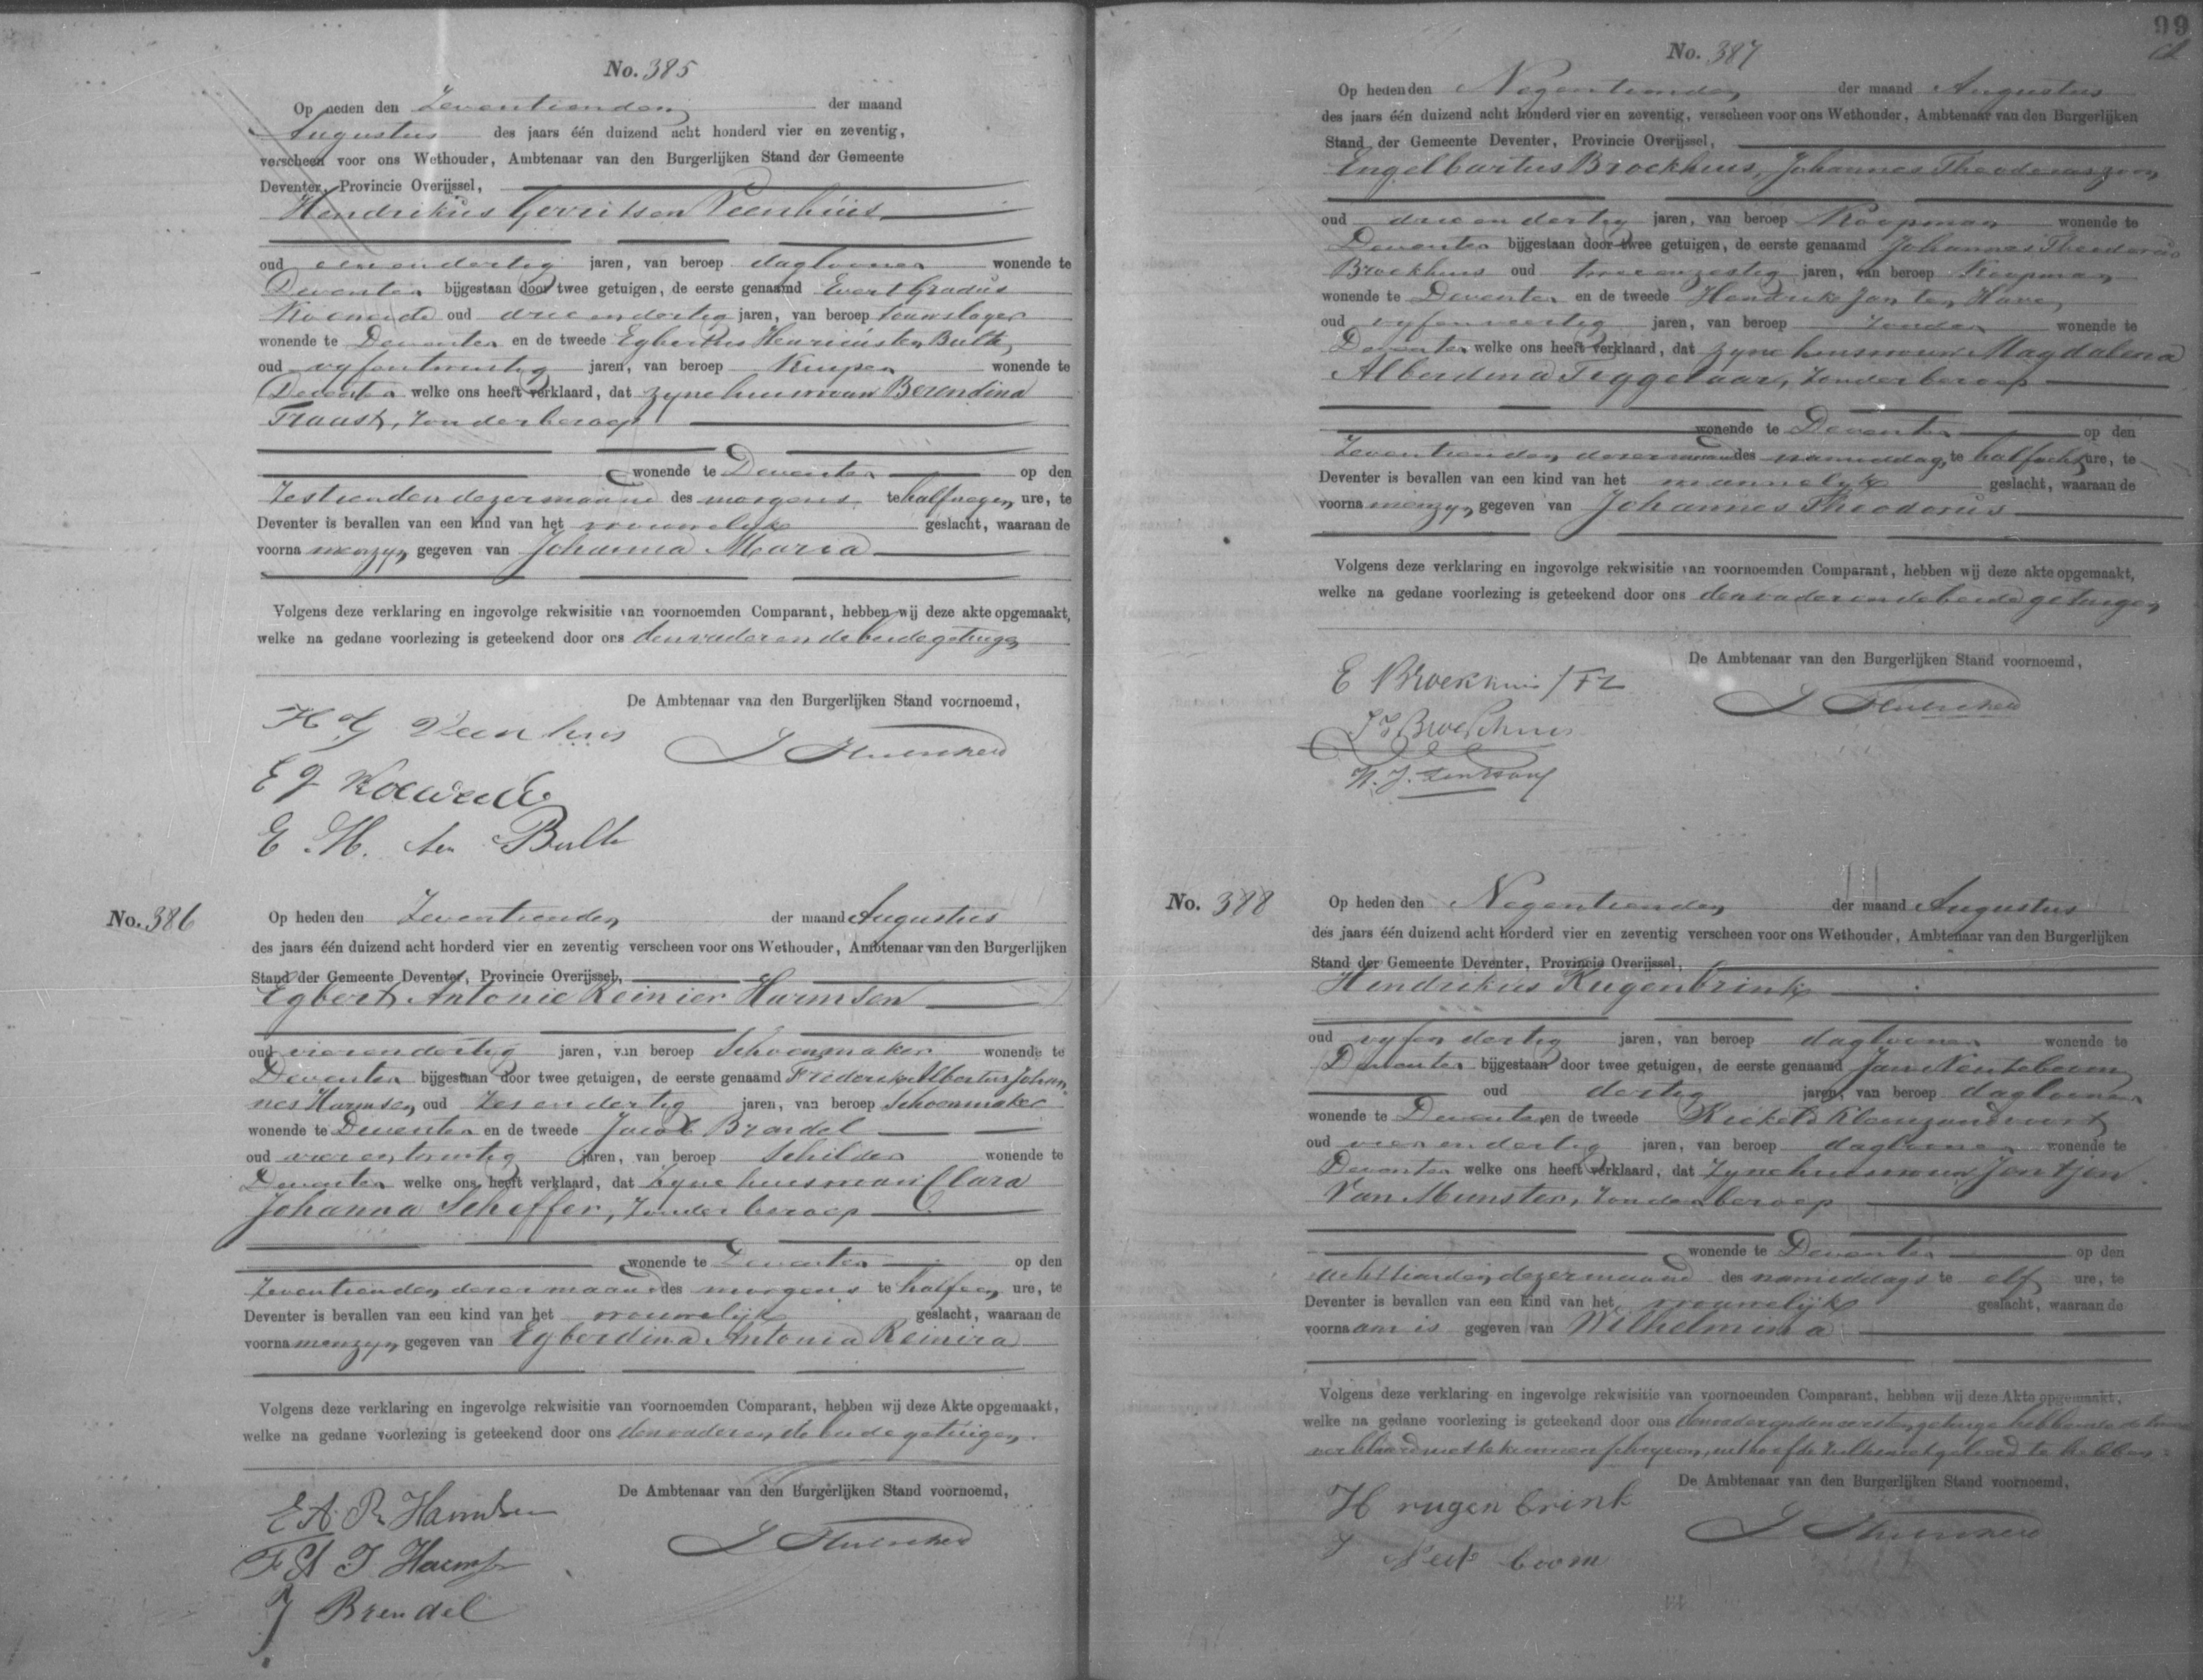 No. 385
Op heden den Zeventienden der maand
Augustus des jaars één duizend acht honderd vier en zeventig,
verscheen voor ons Wethouder, Ambtenaar van den Burgerlijken Stand der Gemeente
Deventer, Provincie Overijssel,
Hendrikus Gerritsen Veenhuis
oud eenendertig jaren, van beroep daglooner wonende te
Deventer bijgestaan door twee getuigen, de eerste genaamd Evert Gradus
oud drieendertig jaren, van beroep touwslager
wonende te Deventer en de tweede Egbertus Henricus ten Bulte
oud vyfentwintig jaren, van beroep Kuiper wonende te
Deventer welke ons heeft verklaard, dat zyne huisvrouw Berendina
Traast, zonder beroep
wonende te Deventer op den
Zestienden dezer maand des morgens te halfnegen ure, te
Deventer is bevallen van een kind van het vrouwelijk geslacht, waaraan de
voornamen zyn gegeven van Johanna Maria
Volgens deze verklaring en ingevolge rekwisitie van voornoemden Comparant, hebben wij deze akte opgemaakt,
welke na gedane voorlezing is geteekend door ons den vader en de beide getuigen
De Ambtenaar van den Burgerlijken Stand voornoemd,
H G Veenhuis
E G
E H. ten Bulte
No. 386
Op heden den Zeventienden der maand Augustus
des jaars één duizend acht honderd vier en zeventig verscheen voor ons Wethouder, Ambtenaar van den Burgerlijken
Stand der Gemeente Deventer, Provincie Overijssel,
Egbert Antonie Reinier Harmsen
oud vierendertig jaren, van beroep Schoenmaker wonende te
Deventer bijgestaan door twee getuigen, de eerste genaamd Frederik Albertus Johan
nes Harmsen oud zesendertig jaren, van beroep Schoenmaker
wonende te Deventer en de tweede Jacob Brendel
oud vierentwintig jaren, van beroep Schilder wonende te
Deventer welke ons heeft verklaard, dat zyne huisvrouw Clara
Johanna Scheffer, zonder beroep
wonende te Deventer op den
Zeventienden dezer maand des morgens te halfeen ure, te
Deventer is bevallen van een kind van het vrouwelijk geslacht, waaraan de
voornamen zyn gegeven van Egberdina Antonia Reinira
Volgens deze verklaring en ingevolge rekwisitie van voornoemden Comparant, hebben wij deze Akte opgemaakt,
welke na gedane voorlezing is geteekend door ons den vader en de beide getuigen.
De Ambtenaar van den Burgerlijken Stand voornoemd,
E A R Harmsen
F A J Harmsen
J Brendel
99
No. 387
Op heden den Negentienden der maand Augustus
des jaars één duizend acht honderd vier en zeventig, verscheen voor ons Wethouder, Ambtenaar van den Burgerlijken
Stand der Gemeente Deventer, Provincie Overijssel,
Engelbartus Broekhuis, Johannes Theodoruszoon
oud drieendertig jaren, van beroep Koopman wonende te
Deventer bijgestaan door twee getuigen, de eerste genaamd Johannes Theodorus
Broekhuis oud tweeenzestig jaren, van beroep Koopman
wonende te Deventer en de tweede Hendrik Jan ten Have
oud vyfenveertig jaren, van beroep zonder wonende te
Deventer welke ons heeft verklaard, dat zyne huisvrouw Magdalena
Alberdina Teggelaar, zonder beroep
wonende te Deventer op den
Zeventienden dezer maand des namiddags te halfacht ure, te
Deventer is bevallen van een kind van het mannelijk geslacht, waaraan de
voornamen zyn gegeven van Johannes Theodorus
Volgens deze verklaring en ingevolge rekwisitie van voornoemden Comparant, hebben wij deze akte opgemaakt,
welke na gedane voorlezing is geteekend door ons den vader en de beide getuigen
De Ambtenaar van den Burgerlijken Stand voornoemd,
E Broekhuis
J T Broekhuis
H. J. ten Have
No. 388
Op heden den Negentienden der maand Augustus
des jaars één duizend acht honderd vier en zeventig verscheen voor ons Wethouder, Ambtenaar van den Burgerlijken
Stand der Gemeente Deventer, Provincie Overijssel,
Hendrikus Rugenbrink
oud vyfendertig jaren, van beroep daglooner wonende te
Deventer bijgestaan door twee getuigen, de eerste genaamd Jan
oud dertig jaren, van beroep daglooner
wonende te Deventer en de tweede
oud vierendertig jaren, van beroep daglooner wonende te
Deventer welke ons heeft verklaard, dat zyne huisvrouw Jentjen
Van Munster, zonder beroep
wonende te Deventer op den
achttienden dezer maand des namiddags te elf ure, te
Deventer is bevallen van een kind van het vrouwelijk geslacht, waaraan de
voornaam is gegeven van Wilhelmina
Volgens deze verklaring en ingevolge rekwisitie van voornoemden Comparant, hebben wij deze Akte opgemaakt,
welke na gedane voorlezing is geteekend door ons den vader en den eersten getuige hebbende de tweede
verklaard niet te kunnen schryven, uit hoofde zulks niet geleerd te hebben.
De Ambtenaar van den Burgerlijken Stand voornoemd,
H rugenbrink
J